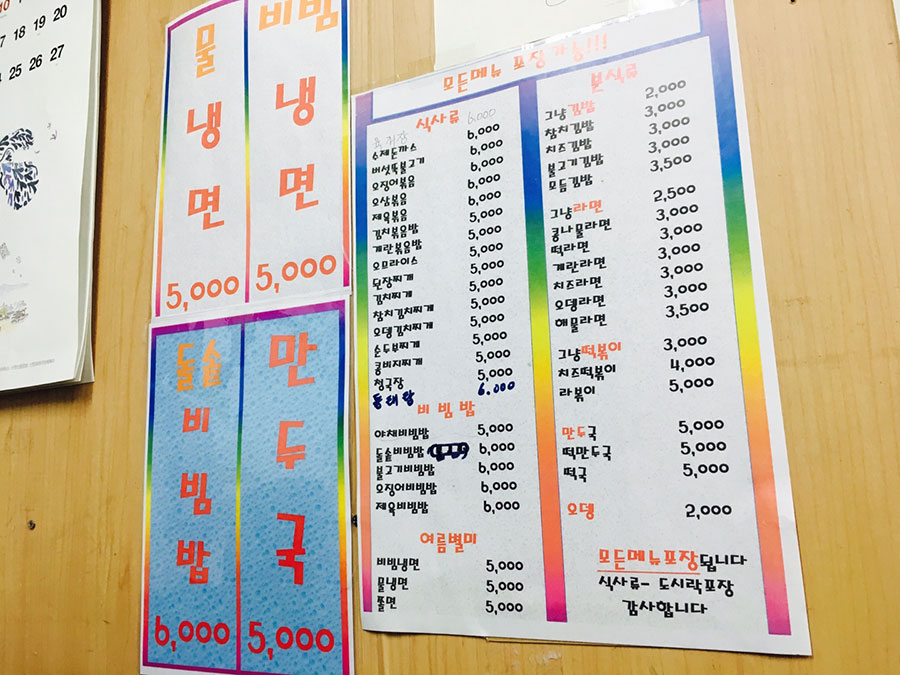 10
7 18 19 20
4 25 26 27
물냉면
5,000
비빔냉면
5,000
돌솥비빔밥
6,000
만두국
5,000
모든메뉴 포장가능!!!
식사류
6,000
수제돈까스 6,000
버섯뚝불고기 6,000
오징어볶음 6,000
오삼볶음 6,000
제육볶음 6,000
김치볶음밥 5,000
계란볶음밥 5,000
오므라이스 5,000
된장찌개 5,000
김치찌개 5,000
참치김치찌개 5,000
오뎅김치찌개 5,000
순두부찌개 5,000
콩비지찌개 5,000
청국장 5,000
동태탕 6.000
비빔밥
야채비빔밥 5,000
돌솥비빔밥 6,000
불고기비빔밥 6,000
오징어비빔밥 6,000
제육비빔밥 6,000
여름별미
비빔냉면 5,000
물냉면 5,000
쫄면 5,000
분식류
그냥김밥 2,000
참치김밥 3,000
치즈김밥 3,000
불고기김밥 3,000
모듬김밥 3,500
그냥라면 2,500
콩나물라면 3,000
떡라면 3,000
계란라면 3,000
치즈라면 3,000
오뎅라면 3,000
해물라면 3,500
그냥떡볶이 3,000
치즈떡볶이 4,000
라볶이 5,000
만두국 5,000
떡만두국 5,000
떡국 5,000
오뎅 2,000
모든메뉴포장됩니다
식사류- 도시락포장
감사합니다